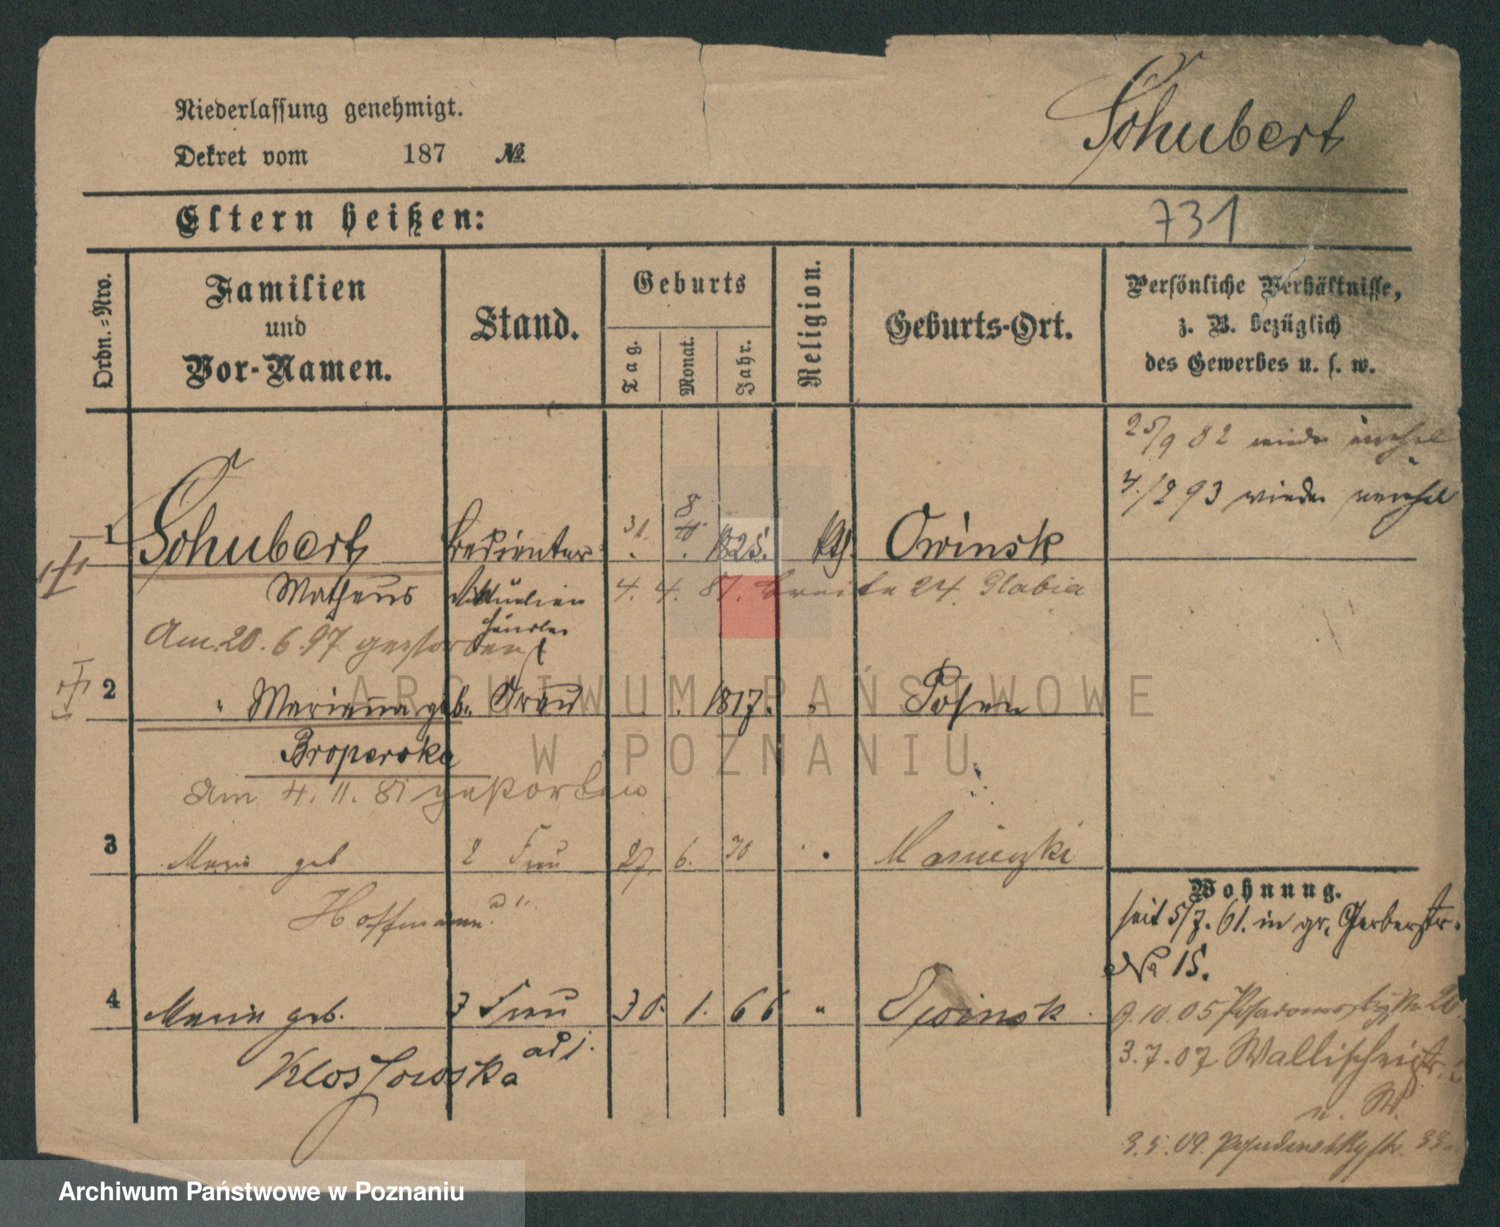 Schubert
Niederlassung genehmigt.
Dekret vom 187 №
731
Eltern heißen:
Ordn.=Nro.
Familien und Vor-Namen.
Stand.
Geburts
Tag.
Monat.
Jahr.
Religion.
Geburts-Ort.
Persönliche Verhältnisse,
z. B. bezüglich
des Gewerbes u. s. w.
25/9 82 wieder
4/2 93 wieder
1 Schubert Bedienter 31. 8 1825. kth. Owinsk
Matheus händler 4. 4. 81. Breite 24.
Am 20. 6. 97 gestorben
2 " Marianna geb. Frau 1817. " Posen
Broperska
Am 4. 11. 81 gestorben
3 Marie geb 2 Frau 27. 6. 70
Hoffmann ad 1.
Wohnung.
seit 5/7. 61. in gr. Gerberstr.
No 15.
4 Marie geb. 3 Frau 30. 1. 66 " Owinsk
Kloszowska ad 1.
9.10.05
3.7.07 Wallischeistr.
3.5.09. 33
ARCHIWUM PAŃSTWOWE
W POZNANIU
Archiwum Państwowe w Poznaniu